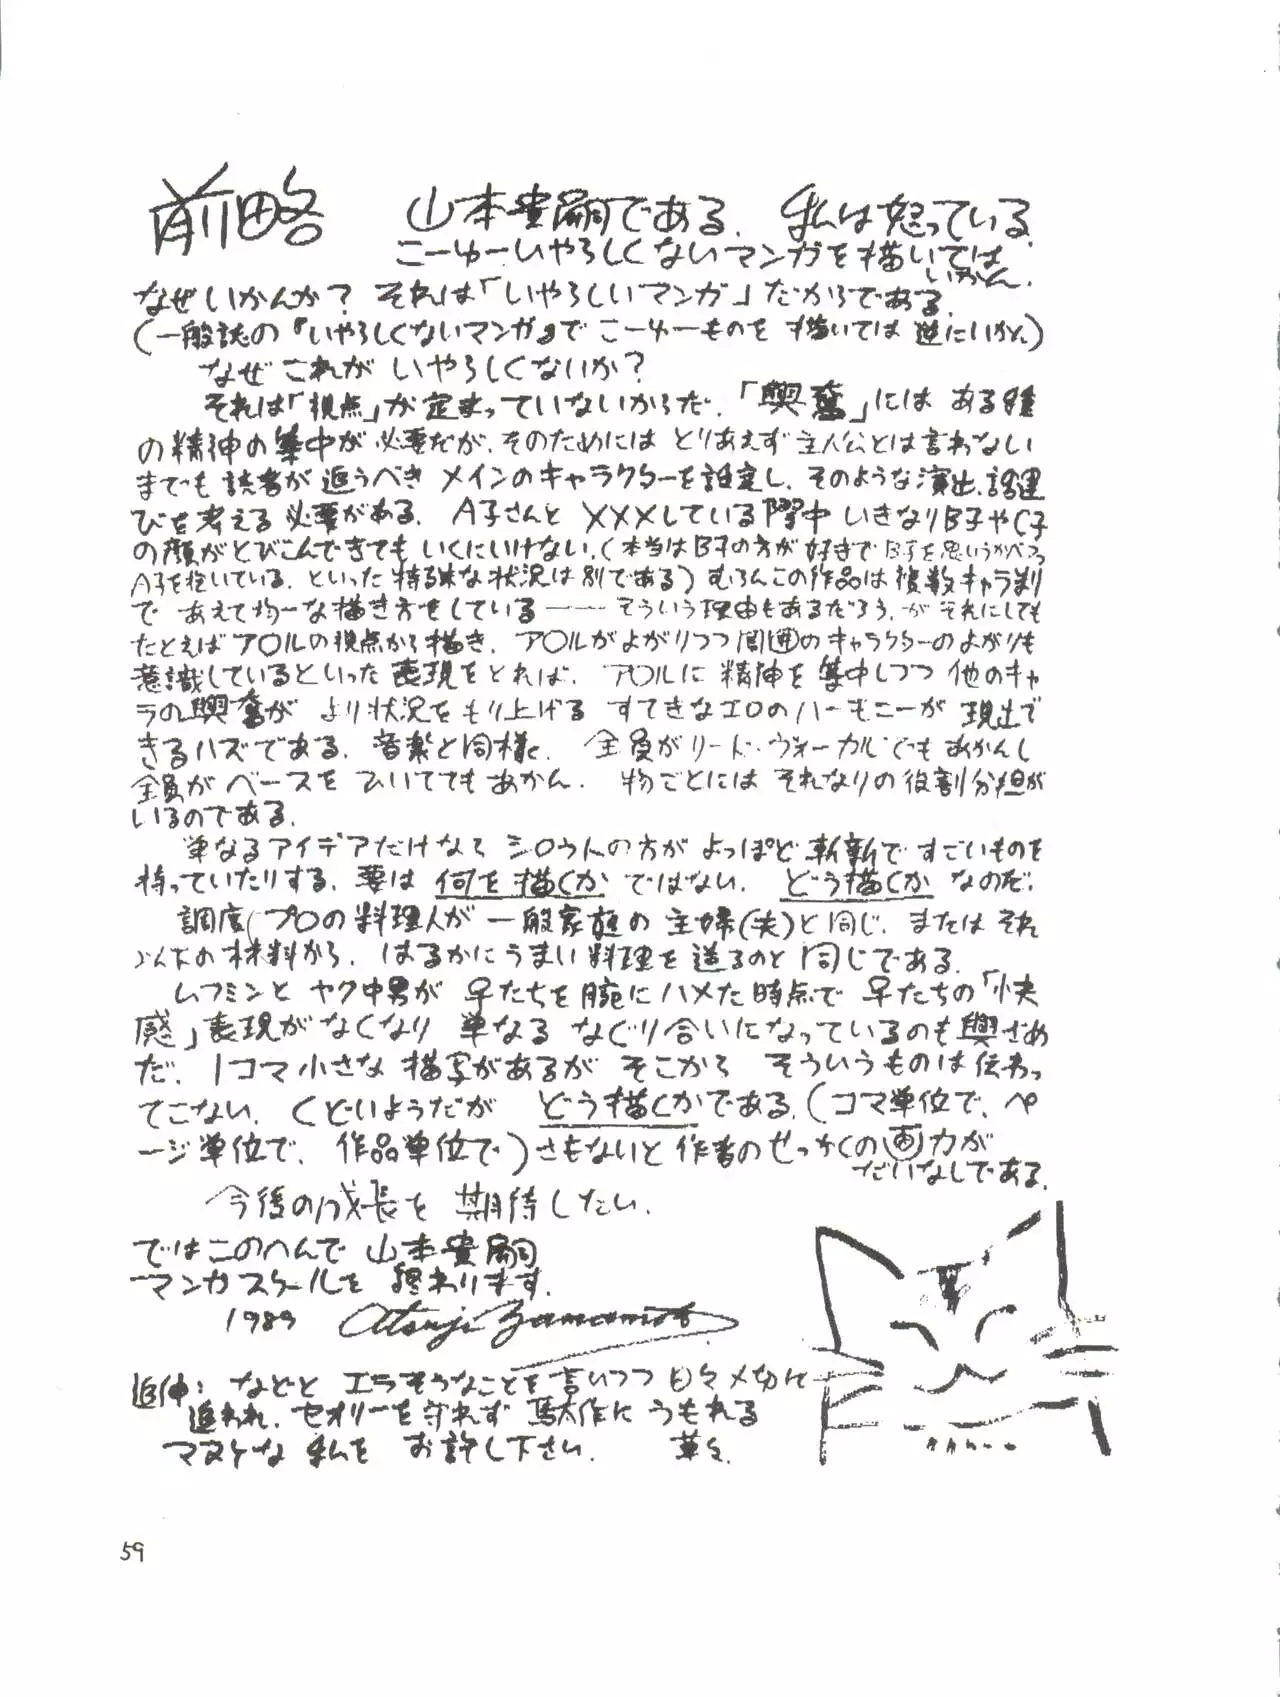 前略　山本貴嗣である。私は怒っている。
こーゆーいやらしくないマンガを描いては
いかん。
なぜいかんか？それは「いやらしいマンガ」だからである。
(一般誌の『いやらしくないマンガ』でこーゆーものを描いては逆にいかん)
なぜこれがいやらしくないか？
それは「視点」が定まっていないからだ。「興奮」にはある種
の精神の集中が必要だが、そのためにはとりあえず主人公とは言わない
までも読者が追うべきメインのキャラクターを設定し、そのような演出、話運
びを考える必要がある。A子さんと×××している際中いきなりB子やC子
の顔がとびこんできてもいくにいけない。(本当はB子の方が好きでB子を思いうかべつつ
A子を抱いている、といった特殊な状況は別である)むろんこの作品は複数キャラ判
であえて均一な描き方をしている――そういう理由もあるだろう、がそれにしても
たとえばア〇ルの視点から描き、ア〇ルがよがりつつ周囲のキャラクターのよがりも
意識しているといった表現をとれば、ア〇ルに精神を集中しつつ他のキャ
ラの興奮がより状況をもり上げるすてきなエロのハーモニーが現出で
きるハズである。音楽と同様、全員がリード・ヴォーカルでもあかんし
全員がベースをひいててもあかん。物ごとにはそれなりの役割分担が
いるのである。
単なるアイデアだけなら シロウトの方がよっぽど斬新ですごいものを
持っていたりする。要は何を描くかではない。どう描くかなのだ。
調度プロの料理人が一般家庭の主婦(夫)と同じ、またはそれ
以下の材料から、はるかにうまい料理を造るのと同じである。
ムフミンとヤク中男が 早たちを腕にハメた時点で早たちの「快
感」表現がなくなり単なるなぐり合いになっているのも興ざめ
だ。1コマ小さな描写があるがそこからそういうものは伝わっ
てこない。くどいようだがどう描くかである。(コマ単位で、ペ
ージ単位で、作品単位で)さもないと作者のせっかくの画力が
だいなしである。
今後の成長を期待したい。
ではこのへんで山本貴嗣
マンガスクールを終わります。
1989 Atsuji Yamamoto
追伸：などとエラそうなことを言いつつ日々〆切に
追われ、セオリーを守れず駄作にうもれる
マヌケな私をお許し下さい。　草々
59